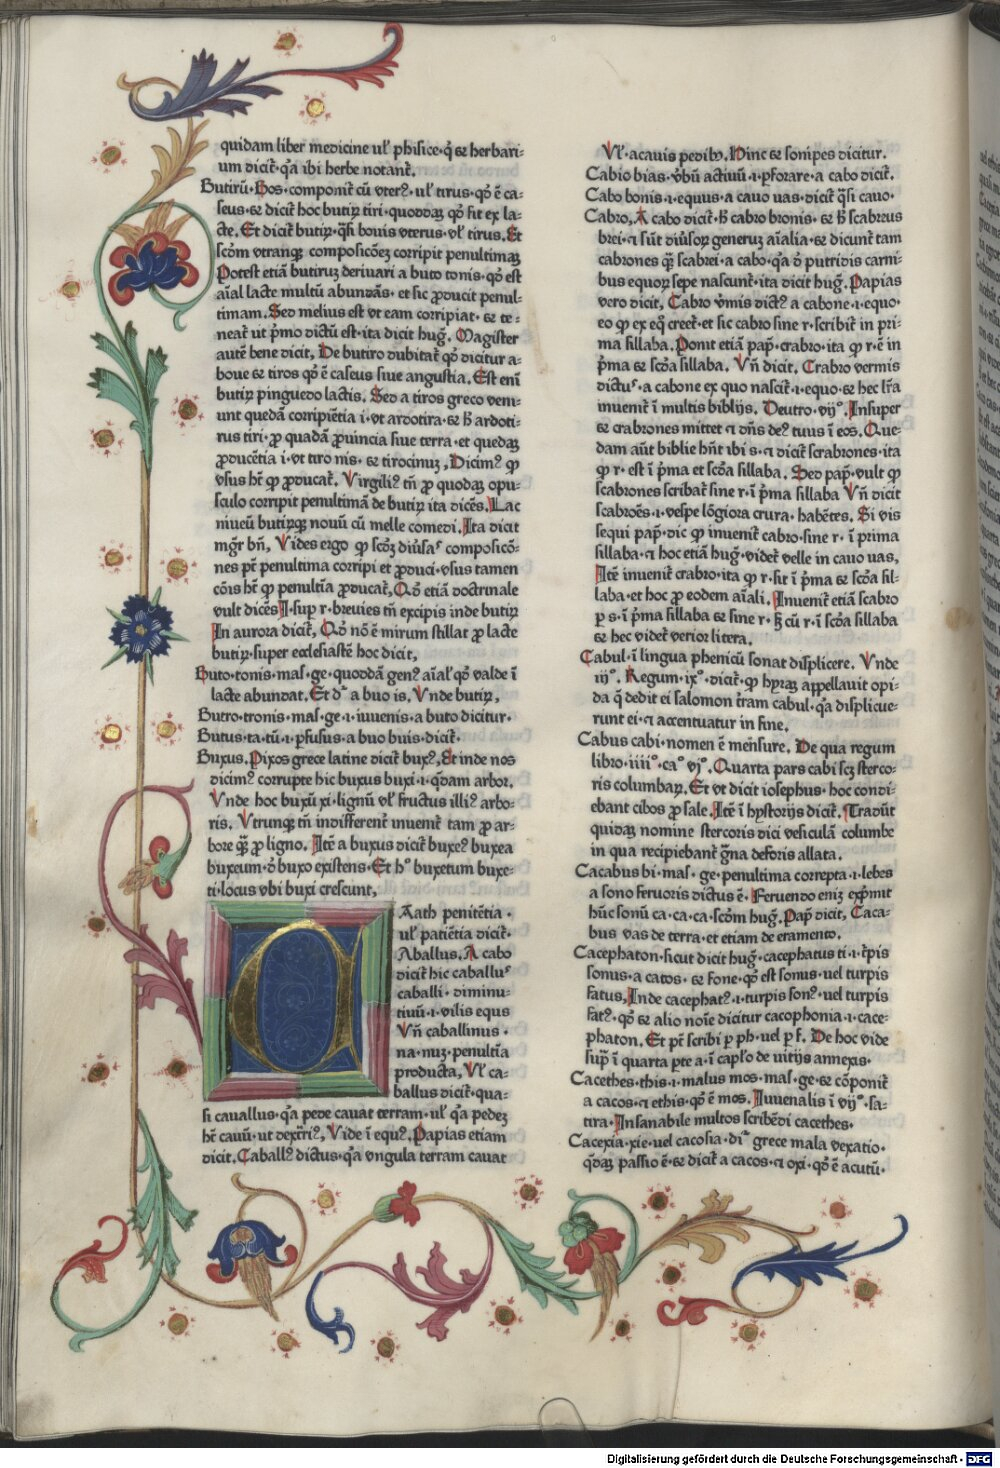 quidam liber medicine ul̕ phisice·q̇ ⁊e herbari⸗
um dicit̄·q̇a ibi herbe notant̄.
Butirū·Bos·componit̄ cū vterꝰ. ul̕ tirus·qo᷒ ē ca⸗
seus·⁊e dicit̄ hoc butiꝝ tiri·quoddaꝫ qo᷒ fit ex la⸗
cte. Et dicit̄ butiꝝ·q̄si bouis vterus·vl̕ tirus. Et
scd̄m vtranqꝫ composicōeꝫ corripit penultimaꝫ
Potest etiā butiruꝫ deriuari a buto tonis·qo᷒ est
aīal lacte multū abundās·et sic ꝓducit penul⸗
timam. Sed melius est vt eam corripiat·⁊e te⸗
neat̄ ut pͥmo dictū est·ita dicit huḡ. Magister
autē bene dicit, De butiro dubitat̄ qo᷒ dicitur a⸗
boue ⁊e tiros qo᷒ ē caseus siue angustia. Est enī
butiꝝ pinguedo lactis. Sed a tiros greco veni⸗
unt quedā corripiētia i·vt ardotira·⁊e h̄ ardoti⸗
rus tiri·ꝓ quadā ꝓuincia siue terra·et quedaꝫ
ꝓducētia i·vt tiro nis·⁊e tirocinuꝫ, Dicimꝰ ꝙ
vsus hꝫ̄ ꝙ ꝓducat̄. Virgiliꝰ tn̄ ꝓ quodaꝫ opu⸗
sculo corripit penultimā de butiꝝ ita dicēs. Lac
niueū butirqꝫ nouū cū melle comedi. Ita dicit
mgr̄ bn̄, Vides ergo ꝙ scd̄ꝫ diūsas composicō⸗
nes pt̄ penultima corripi et ꝓduci·vsus tamen
cōis hꝫ̄ ꝙ penultīa ꝓducat̄, Qo᷒ etiā doctrinale
vult dicēs I·sup r·breuies tn̄ excipis inde butiꝝ
In aurora dicit̄, Qo᷒ nō ē mirum stillat ꝓ lacte
butiꝝ·super ecclesiastē hoc dicit,
Buto·tonis·mas·ge·quoddā genꝰ aīalꝰ qo᷒ valde ī
lacte abundat. Et dr̄ a buo is. Vnde butiꝝ,
Butro·tronis·mas·ge·i·iuuenis·a buto dicitur·
Butus·ta·tū·i·ꝑfusus·a buo buis·dicit̄·
Buxus. Pixos grece latine dicit̄ buxꝰ, Et inde nos
dicimꝰ corrupte hic buxus buxi·i·q̄dam arbor.
Vnde hoc buxū xi·lignū vl̕ fructus illiꝰ arbo⸗
ris. Vtrunqꝫ tn̄ indifferent̄ inuenit̄ tam ꝓ ar⸗
bore qꝫ̄ ꝓ ligno. Itē a buxus dicit̄ buxeꝰ buxea
buxeum·d᷒ buxo existens·Et hoͦ buxetum buxe⸗
ti·locus vbi buxi crescunt,
Caath penitētia·
ul̕ patiētia dicit̄·
Caballus. A cabo
dicit̄ hic caballus
caballi·diminu⸗
tiuū·i·vilis equs
Vn̄ caballinus·
na·nuꝫ·penultīa
producta, Vl̕ ca⸗
ballus dicit̄·qua⸗
si cauallus·q̇a pede cauat terram·ul̕ q̇a pedeꝫ
hꝫ̄ cauū·ut dext̄riꝰ, Vide ī equꝰ. Papias etiam
dicit. Caballꝰ dictus·q̇a vngula terram cauat
Vl̕·acauis pedibꝫ. Hinc ⁊e sonipes dicitur.
Cabio bias·vbū actiuū·i·ꝑforare·a cabo dicit̄.
Cabo bonis·i·equus·a cauo uas·dicit̄ q̄si cauo·
Cabro. A cabo dicit̄·h̄ cabro bronis·⁊e h̄ scabreus
brei·⁊ sūt diūsoꝝ generuꝫ aīalia·⁊e dicunt̄ tam
cabrones qꝫ̄ scabrei·a cabo·q̇a d᷒ putridis carni⸗
bus equoꝝ sepe nascunt̄·ita dicit huḡ. Papias
vero dicit, Cabro v̄mis dictꝰ·a cabone·i·equo·
eo ꝙ ex eq̊ creet̄·et sic cabro sine r·scribit̄ in pri⸗
ma sillaba. Ponit etiā pap̄·crabro·ita ꝙ r·ē in
pͥma ⁊e scd̄a sillaba. Vn̄ dicit. Crabro vermis
dictus·a cabone ex quo nascit̄·i·equo·⁊e hec lr̄a
inuenit̄ ī multis biblijs. Deutro·vijͦ. Insuper
⁊e crabrones mittet ⁊ dn̄s deꝰ tuus ī eos. Que⸗
dam aūt biblie hn̄t ibi s·⁊ dicit̄ scrabrones·ita
ꝙ r·est ī pͥma et scd̄a sillaba. Sed pap̄·vult ꝙ
scabrones scribat̄ sine r·ī pͥma sillaba Vn̄ dicit
scabroēs·i·vespe lōgiora crura·habētes. Si vis
sequi pap̄·dic ꝙ inuenit̄ cabro·sine r·ī prima
sillaba·⁊ hoc etiā huḡ·videt̄ velle in cauo uas,
Itē inuenit̄ crabro·ita ꝙ r·sit ī pͥma ⁊e scd̄a sil⸗
laba·et hoc ꝓ eodem aīali. Inuenit̄ etiā scabro
ꝑ s·ī pͥma sillaba ⁊e sine r·ꝫ cū r·ī scd̄a sillaba
⁊e hec videt̄ verior litera.
Cabul·ī lingua phenicū sonat displicere. Vnde
iijͦ. Regum·ixͦ·dicit̄·ꝙ hyraꝫ appellauit opi⸗
da q̄ dedit ei salomon ī terram cabul·q̇a displicue⸗
runt ei·⁊ accentuatur in fine.
Cabus cabi·nomen ē mensure. De qua regum
libro·iiijͦ·caͦ vjͦ. Quarta pars cabi scꝫ sterco⸗
ris columbaꝝ. Et vt dicit iosephus·hoc condi⸗
ebant cibos ꝓ sale. Itē ī hystorijs dicit̄. Tradūt
quidaꝫ nomine stercoris dici vesiculā columbe
in qua recipiebant grana deforis allata.
Cacabus bi·mas·ge·penultima correpta·i·lebes
a sono feruoris dictus ē. Feruendo eniꝫ expͥmit
hūc sonū ca·ca·ca·scd̄m huḡ. Pap̄ dicit, Caca⸗
bus vas de terra·et etiam de eramento.
Cacephaton·sicut dicit huḡ·cacephatus ti·i·turpis
sonus·a catos·⁊e fone·qo᷒ est sonus·uel turpis
fatus, Inde cacephatꝰ·i·turpis sonꝰ·uel turpis
fatꝰ·qo᷒ ⁊e alio noīe dicitur cacophonia·i·cace⸗
phaton. Et pt̄ scribi ꝑ ph·uel ꝑ f. De hoc vide
sup̄ ī quarta pte·⁊·ī capl̄o de vitijs annexis.
Cacethes·this·i·malus mos·mas·ge·⁊e cōponit̄
a cacos·⁊ ethis·qo᷒ ē mos. Iuuenalis ī vijͦ·sa⸗
tira·Insanabile multos scribēdi cacethes·
Cacexia·xie·uel cacosia·dr̄ grece mala vexatio·
q̄daꝫ passio ē·⁊e dicit̄ a cacos·⁊ oxi·qo᷒ ē acutū·
Digitalisierung gefördert durch die Deutsche Forschungsgemeinschaft - DFG